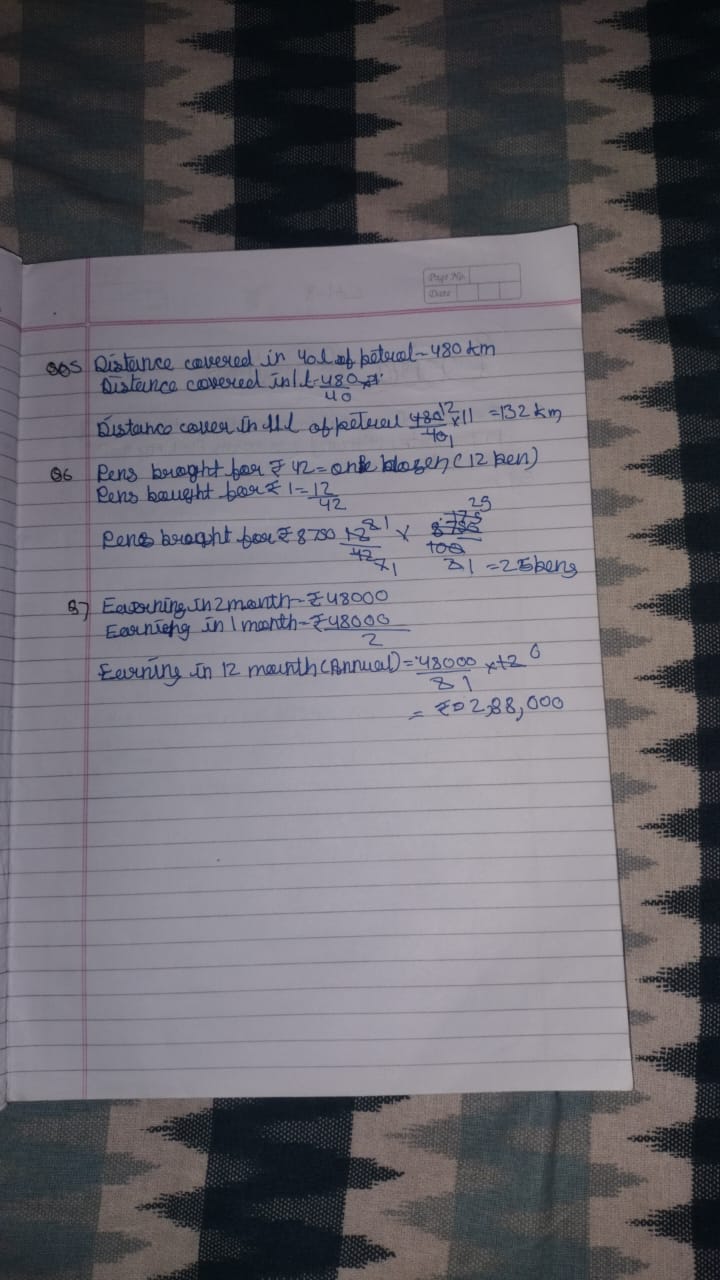 Page No.
Date
Q5 Distance covered in 40l of petural - 480 km
Distance covered in 1 L - 480
40
Distance cover in 11 l of petural 480 12 x 11 = 132 km
40 1
Q6 Pens brought for ₹ 42 = one dozen (12 pen)
Pens bought for ₹ 1 = 12
42
Pens brought for ₹ 8750 12 x
42 100
= 25 pens
Q7 Earning in 2 month - ₹ 48000
Earning in 1 month - ₹ 48000
2
Earning in 12 mounth (Annual) = 48000 x 12 6
2 1
= ₹ 2,88,000